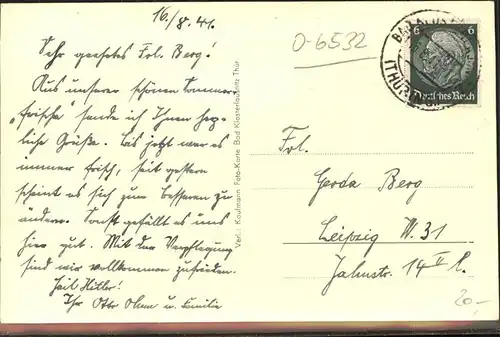 16./8.41.
Sehr geehrtes Frl. Berg!
Aus unserer schönen Sommer-
"frische" sende ich Ihnen herz-
liche Grüße. Bis jetzt war es
immer frisch, seit gestern
scheint es sich zum besseren zu
ändern. Sonst gefällt es uns
hier gut. Mit der Verpflegung
sind wir vollkommen zufrieden.
Heil Hitler!
Ihr Otto u. Familie
Verl. Kaufmann Foto-Karte Bad Klosterlausnitz Thür
0-6532
BAD KLOST
(THÜR
6 6
Deutsches Reich
Frl.
Gerda Berg
Leipzig W. 31
Jahnstr. 14 II l.
20,-